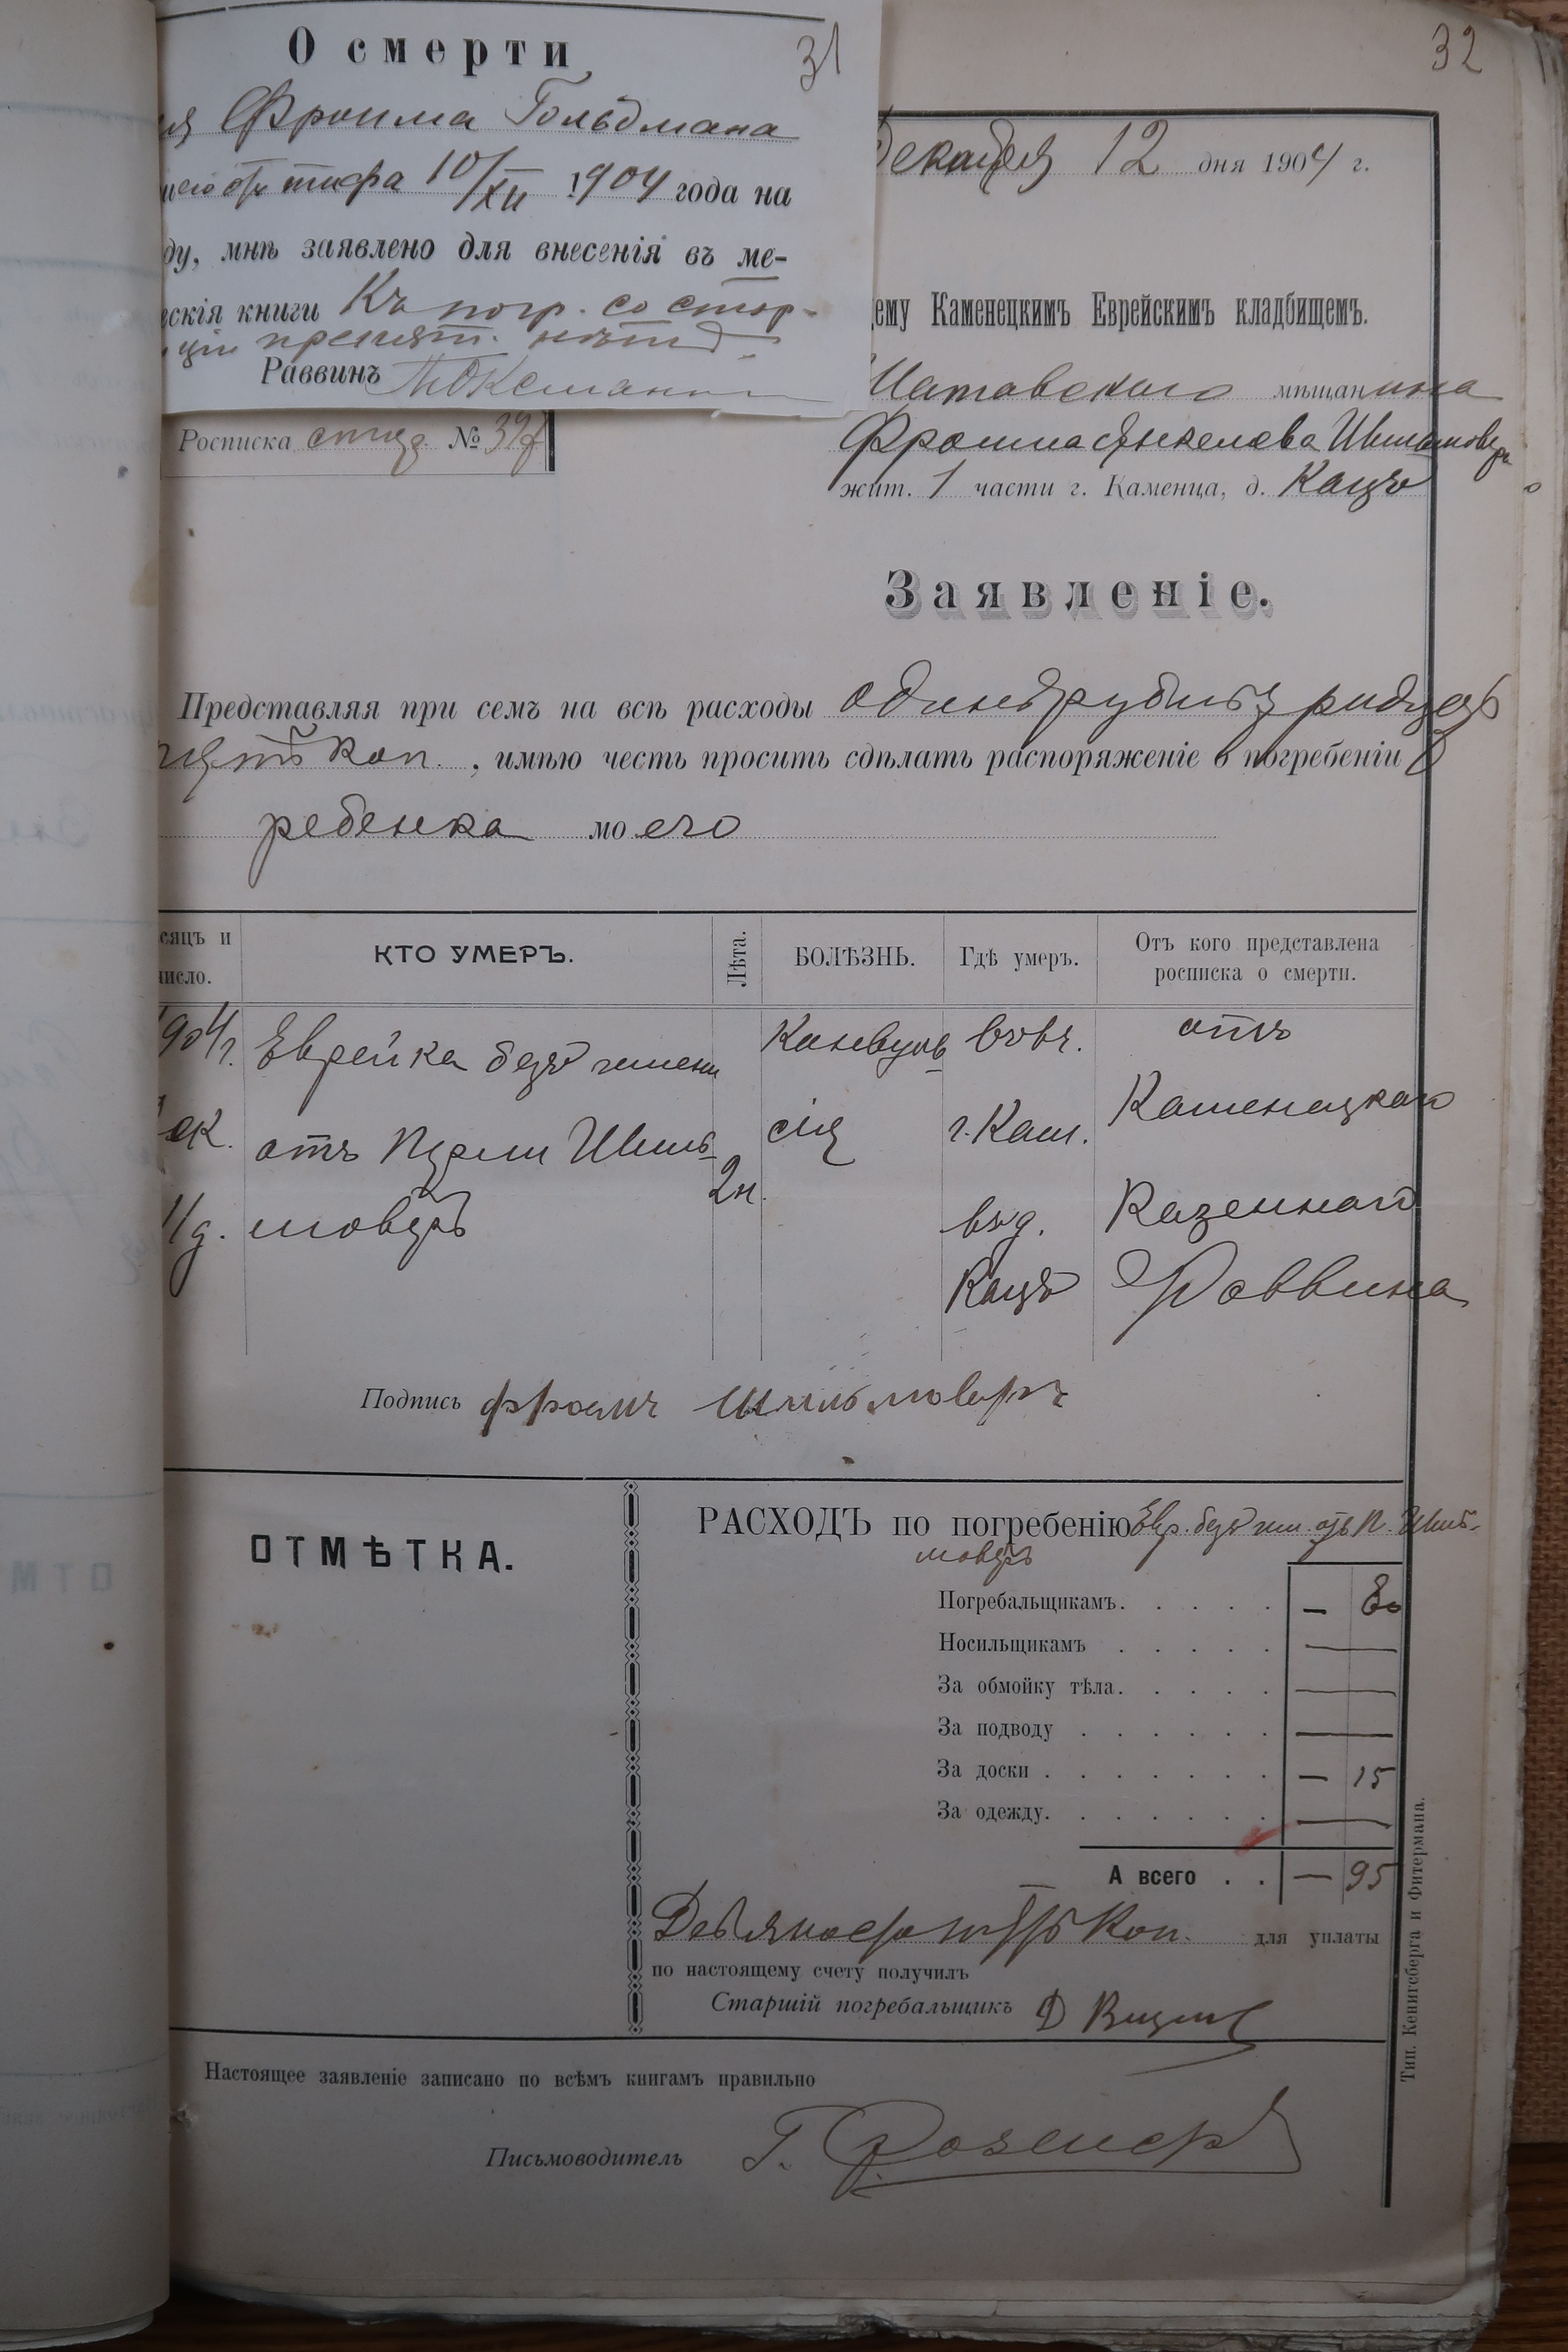 О смерти
31
32
Фроима Гольдмана
тифа 10/XII 1904 года на
ду, мнѣ заявлено для внесенія въ ме-
скія книги Къ погр. со стор-
ціи препят. нѣтъ
Раввинъ
Росписка №
Декабря 12 дня 1904 г.
ему Каменецкимъ Еврейскимъ кладбищемъ.
Шатавского мѣщанина
Фроима Янкелева Шильмоверъ
жит. 1 части г. Каменца, д. Кацъ
Заявленіе.
Представляя при семъ на всѣ расходы одинъ рубль
коп., имѣю честь просить сдѣлать распоряженіе о погребеніи
ребенка моего
сяцъ и число.
КТО УМЕРЪ.
Лѣта.
БОЛѢЗНЬ.
Гдѣ умеръ.
Отъ кого представлена росписка о смерти.
904 г.
ек.
11 д.
Еврейка безъ имени
отъ Перли Шиль-
моверъ
2 н.
Конвуль-
сія
г. Кам.
въ д.
Кацъ
отъ
Каменецкаго
Казеннаго
Раввина
Подпись Фроимъ Шильмоверъ
ОТМѢТКА.
РАСХОДЪ по погребенію Евр. безъ им. отъ П. Шиль-
моверъ
Погребальщикамъ. . . . . — 80
Носильщикамъ . . . . . —
За обмойку тѣла. . . . . —
За подводу . . . . . . —
За доски . . . . . . . — 15
За одежду. . . . . . . —
А всего . . — 95
Девяносто пять коп. для уплаты
по настоящему счету получилъ
Старшій погребальщикъ Д
Настоящее заявленіе записано по всѣмъ книгамъ правильно
Письмоводитель Г.
Тип. Кенигсберга и Фитермана.